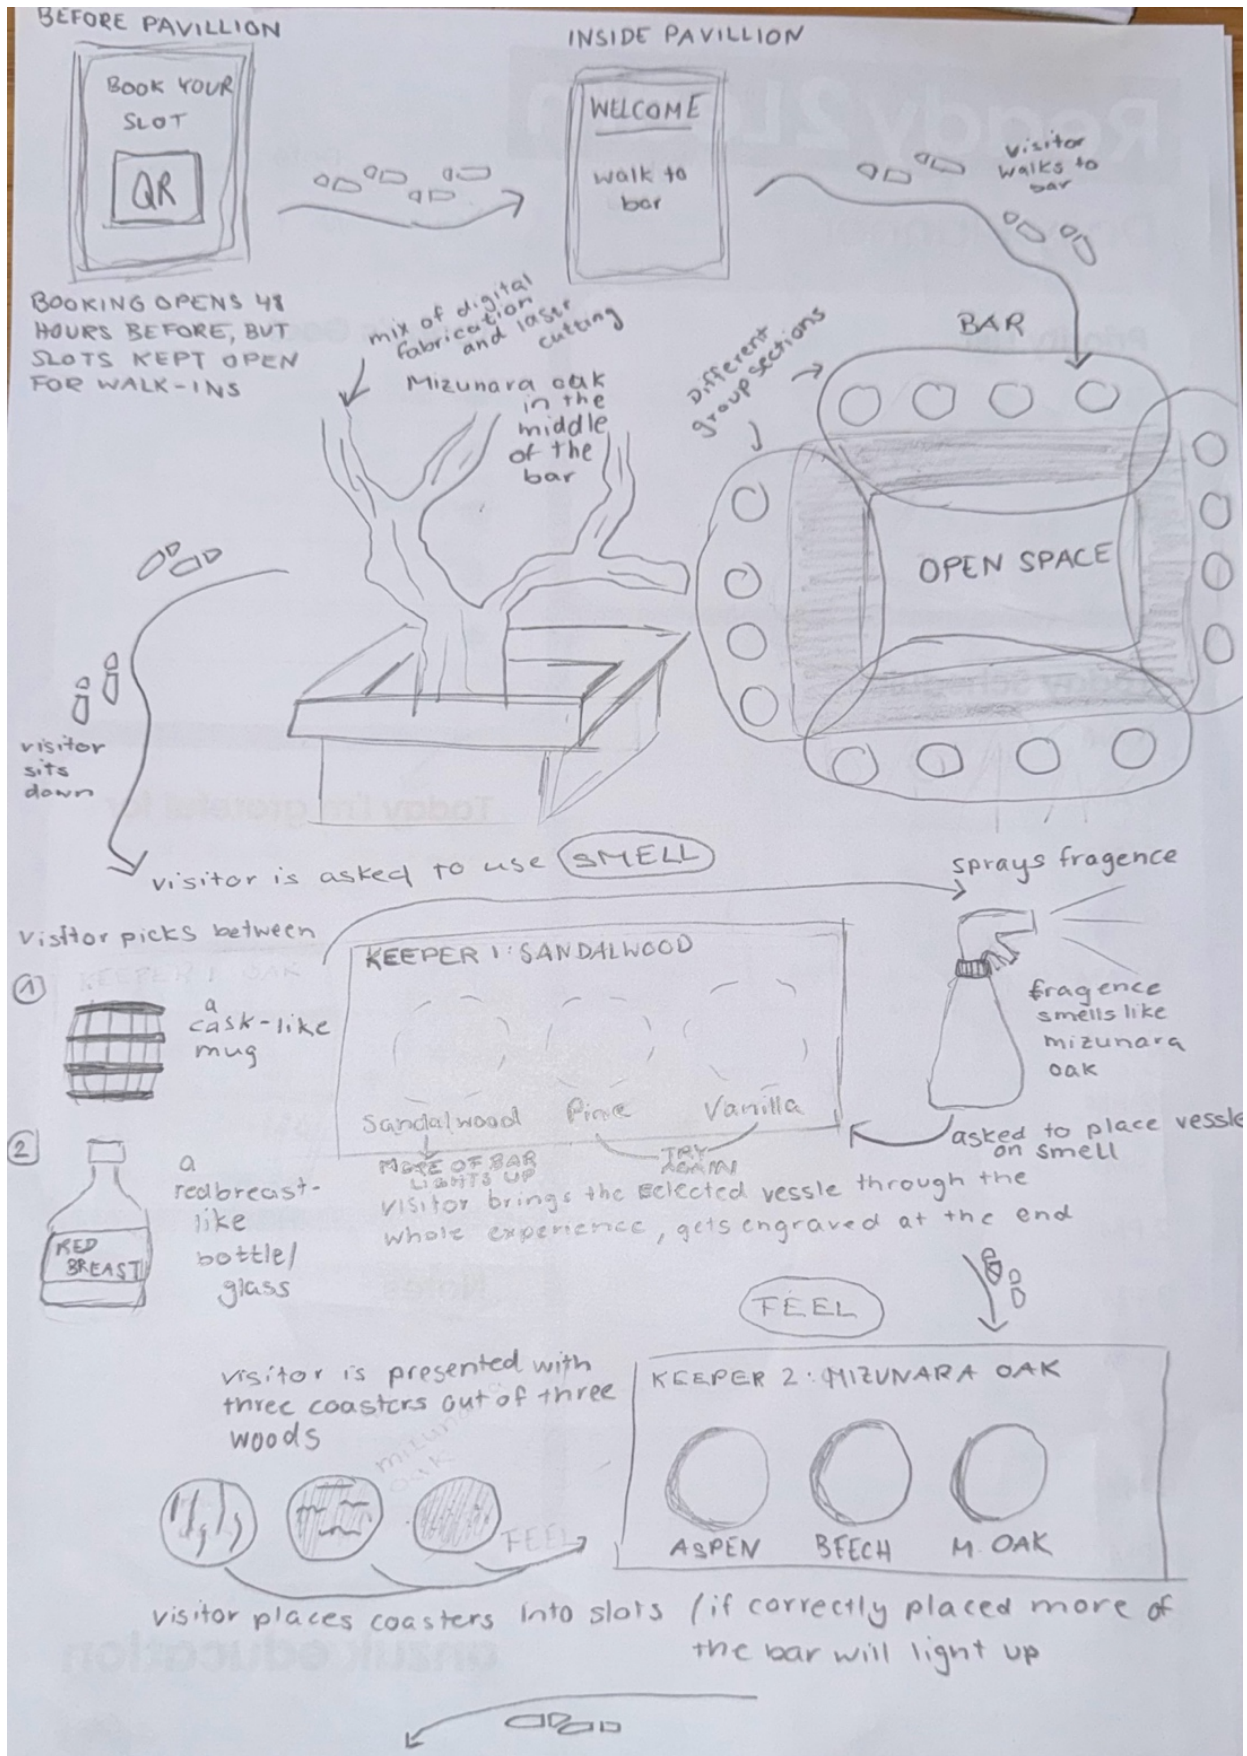 BEFORE PAVILLION
BOOK YOUR
SLOT
QR
BOOKING OPENS 48
HOURS BEFORE, BUT
SLOTS KEPT OPEN
FOR WALK-INS
INSIDE PAVILLION
WELCOME
walk to
bar
visitor
walks to
bar
mix of digital
fabrication
and laser
cutting
Mizunara oak
in the
middle
of the
bar
Different
group sections
BAR
OPEN SPACE
visitor
sits
down
visitor is asked to use SMELL
visitor picks between
1
a
cask-like
mug
2
a
redbreast-
like
bottle/
glass
RED
BREAST
KEEPER 1: SANDALWOOD
Sandalwood
Pine
Vanilla
MORE OF BAR
LIGHTS UP
TRY
AGAIN
sprays fragence
fragence
smells like
mizunara
oak
asked to place vessle
on smell
visitor brings the selected vessle through the
whole experience, gets engraved at the end
FEEL
visitor is presented with
three coasters out of three
woods
mizunara
oak
FEEL
KEEPER 2: MIZUNARA OAK
ASPEN
BEECH
M. OAK
visitor places coasters into slots / if correctly placed more of
the bar will light up